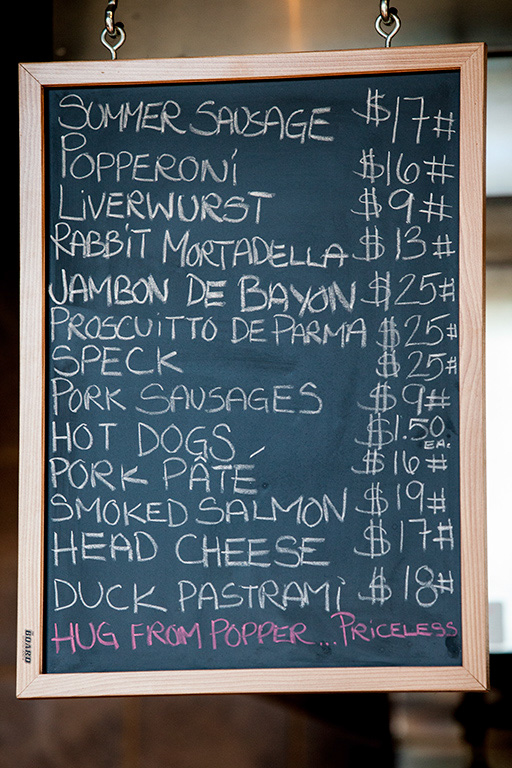 SUMMER SAUSAGE $17#
POPPERONI $16#
LIVERWURST $9#
RABBIT MORTADELLA $13#
JAMBON DE BAYON $25#
PROSCUITTO DE PARMA $25#
SPECK $25#
PORK SAUSAGES $9#
HOT DOGS $1.50 EA.
PORK PÂTÉ $16#
SMOKED SALMON $19#
HEAD CHEESE $17#
DUCK PASTRAMI $18#
HUG FROM POPPER... PRICELESS
BOARD